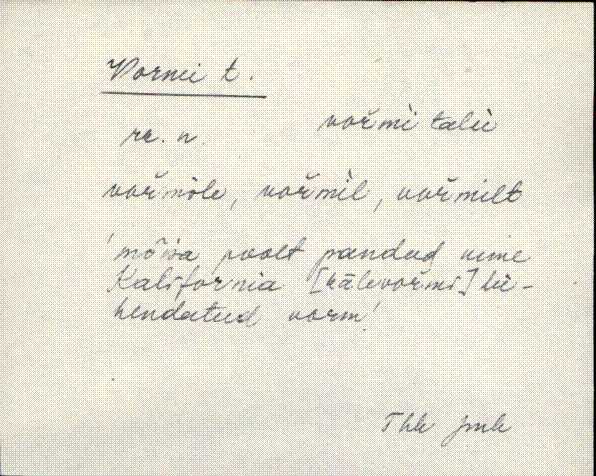 Vormi t.
rr. n. vořmi talu
vořmile, vořmil, vořmilt
'mõisa poolt pandud nime
Kalifornia [kālevořmi] lü-
hendatud vorm'
Thk jmk